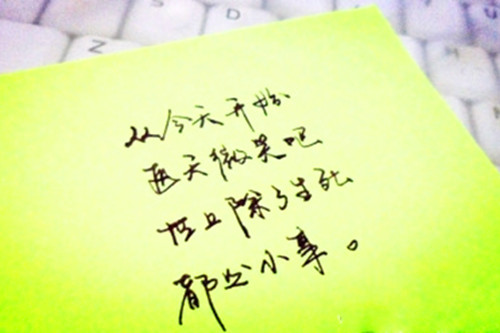 Z
S
D
从今天开始
每天微笑吧
世上除了生死
都是小事。